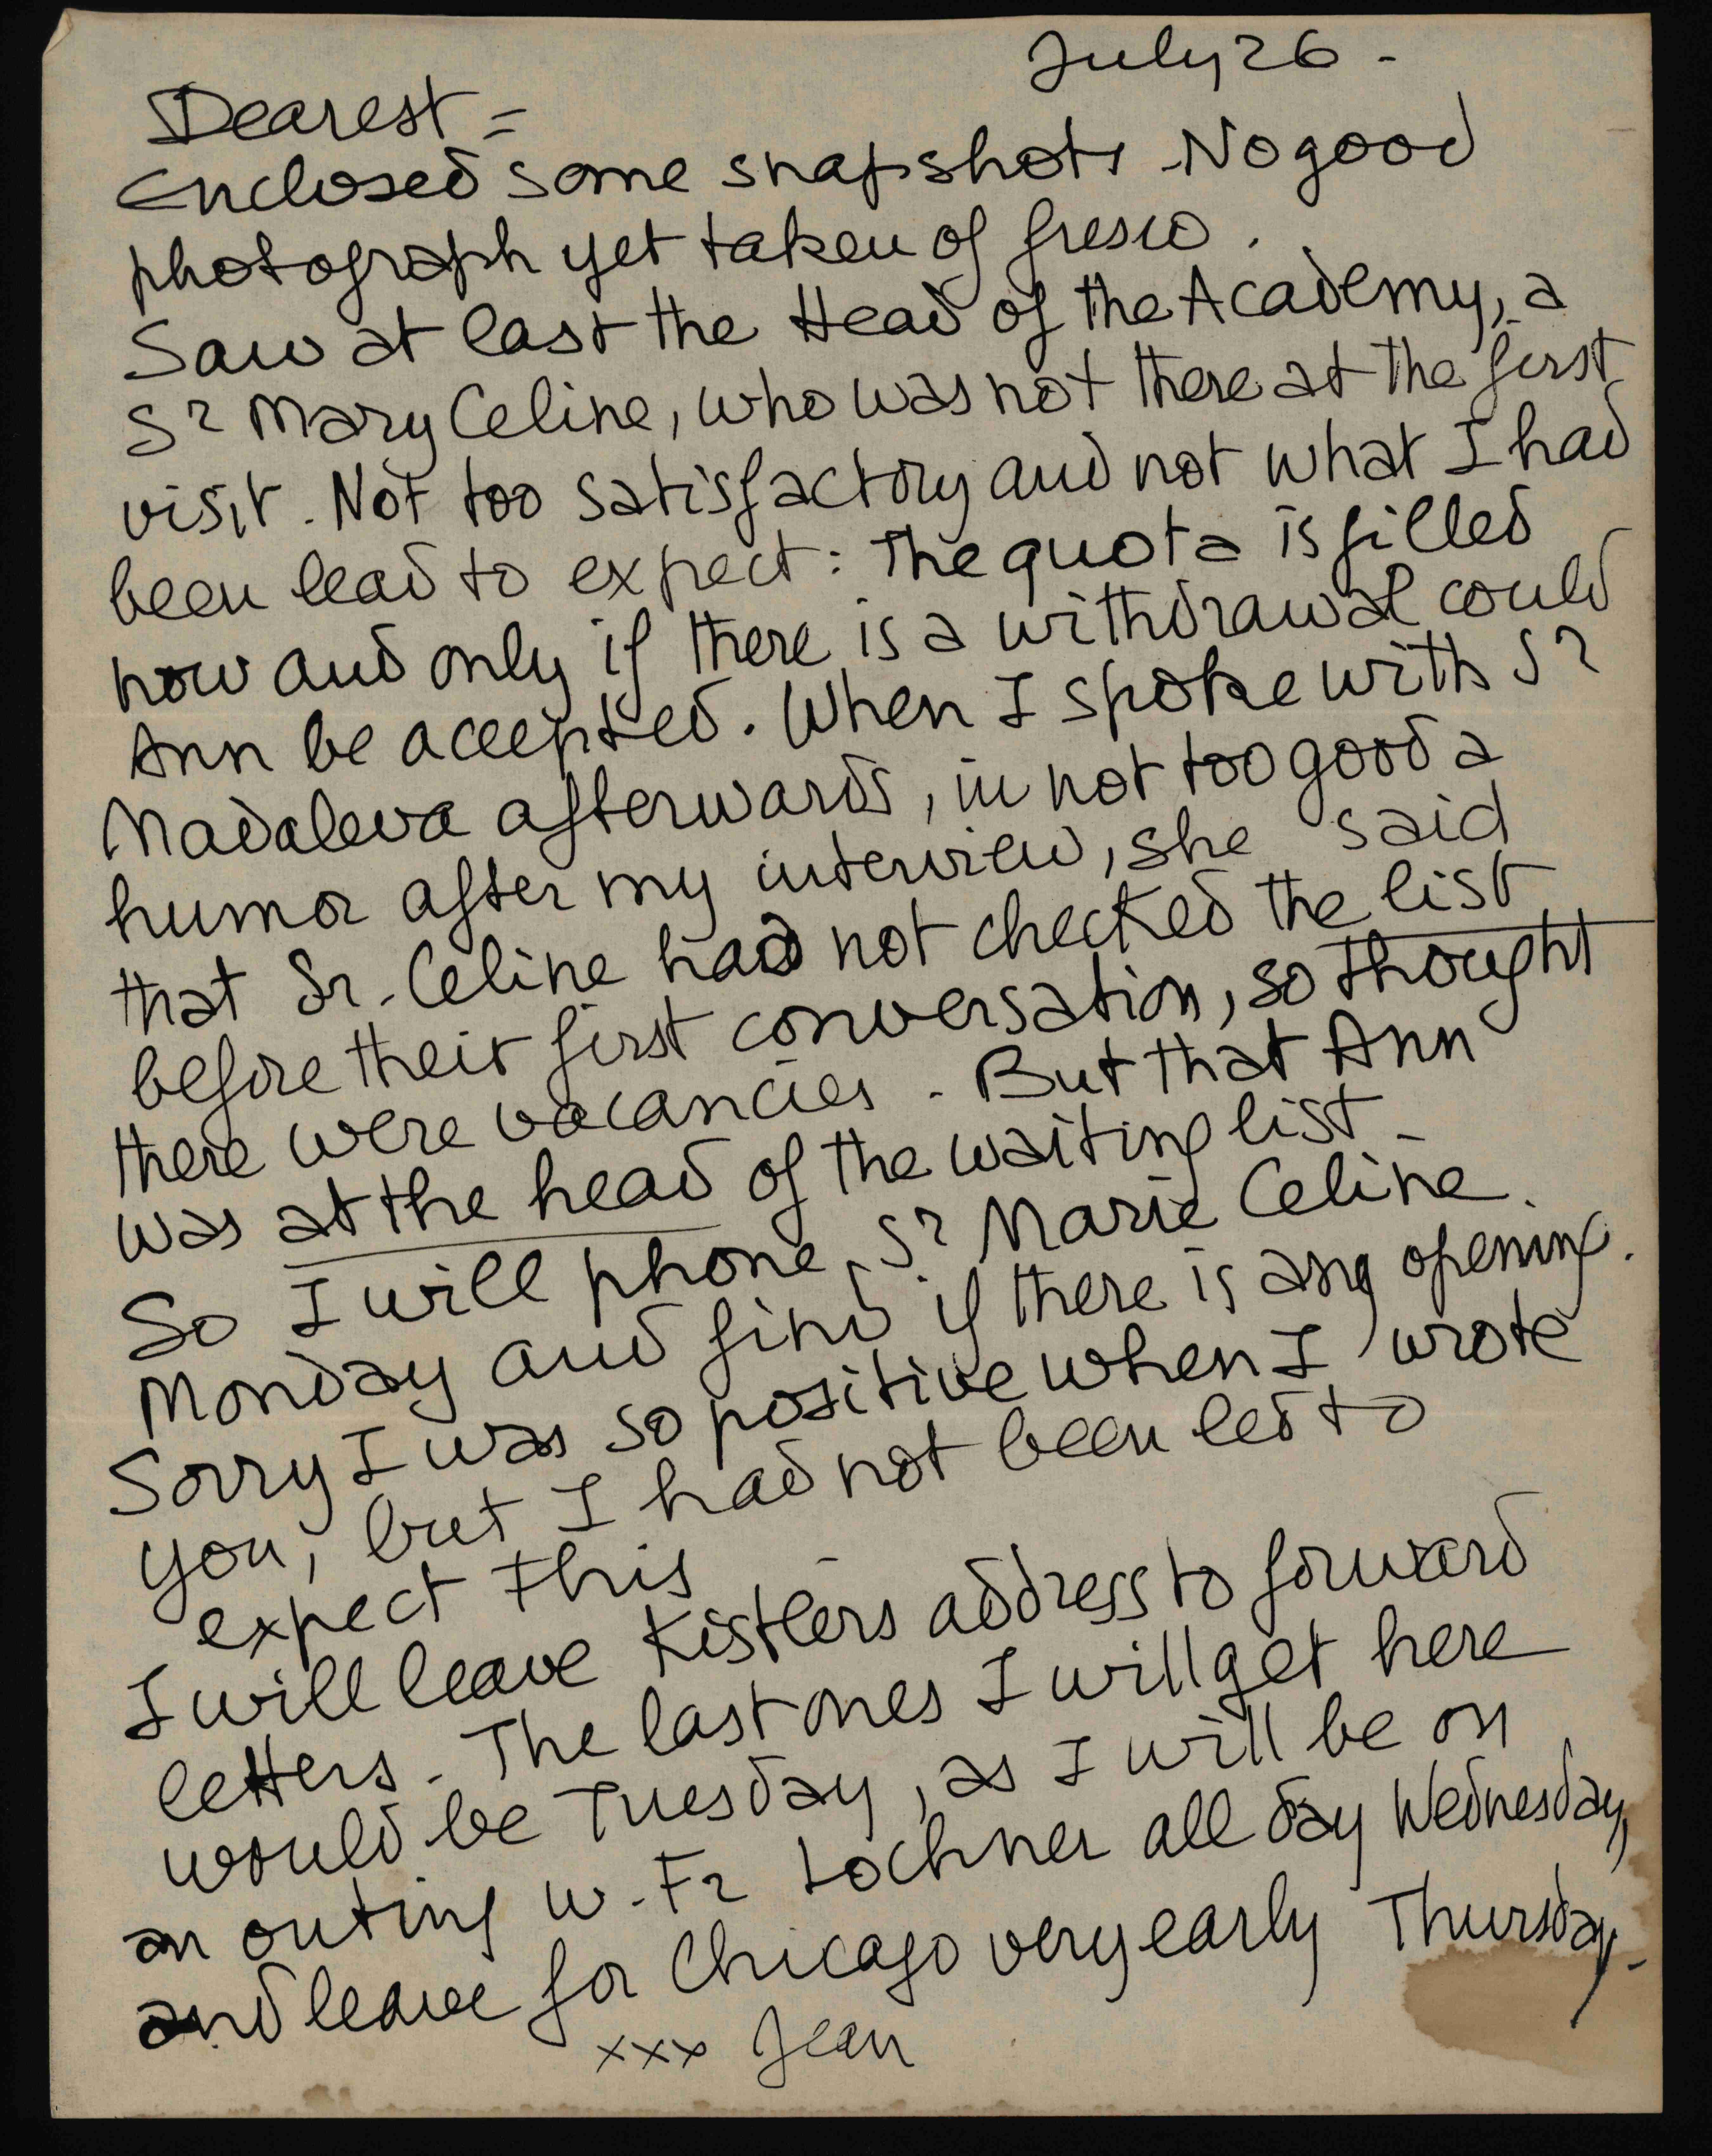 July 26 -
Dearest =
Enclosed some snapshots. No good
photograph yet taken of fresco.
Saw at last the Head of the Academy, a
Sr Mary Celine, who was not there at the first
visit. Not too satisfactory and not what I had
been lead to expect: The quota is filled
now and only if there is a withdrawal could
Ann be accepted. When I spoke with Sr
Madaleva afterwards, in not too good a
humor after my interview, she said
that Sr. Celine had not checked the list
before their first conversation, so thought
there were vacancies. But that Ann
was at the head of the waiting list -
So I will phone Sr Marie Celine.
Monday and find if there is any opening.
Sorry I was so positive when I wrote
you, but I had not been led to
expect this -
I will leave Kistlers address to forward
letters. The last ones I will get here
would be Tuesday, as I will be on
an outing w. Fr Lochner all day Wednesday,
and leave for Chicago very early Thursday.-
xxx Jean